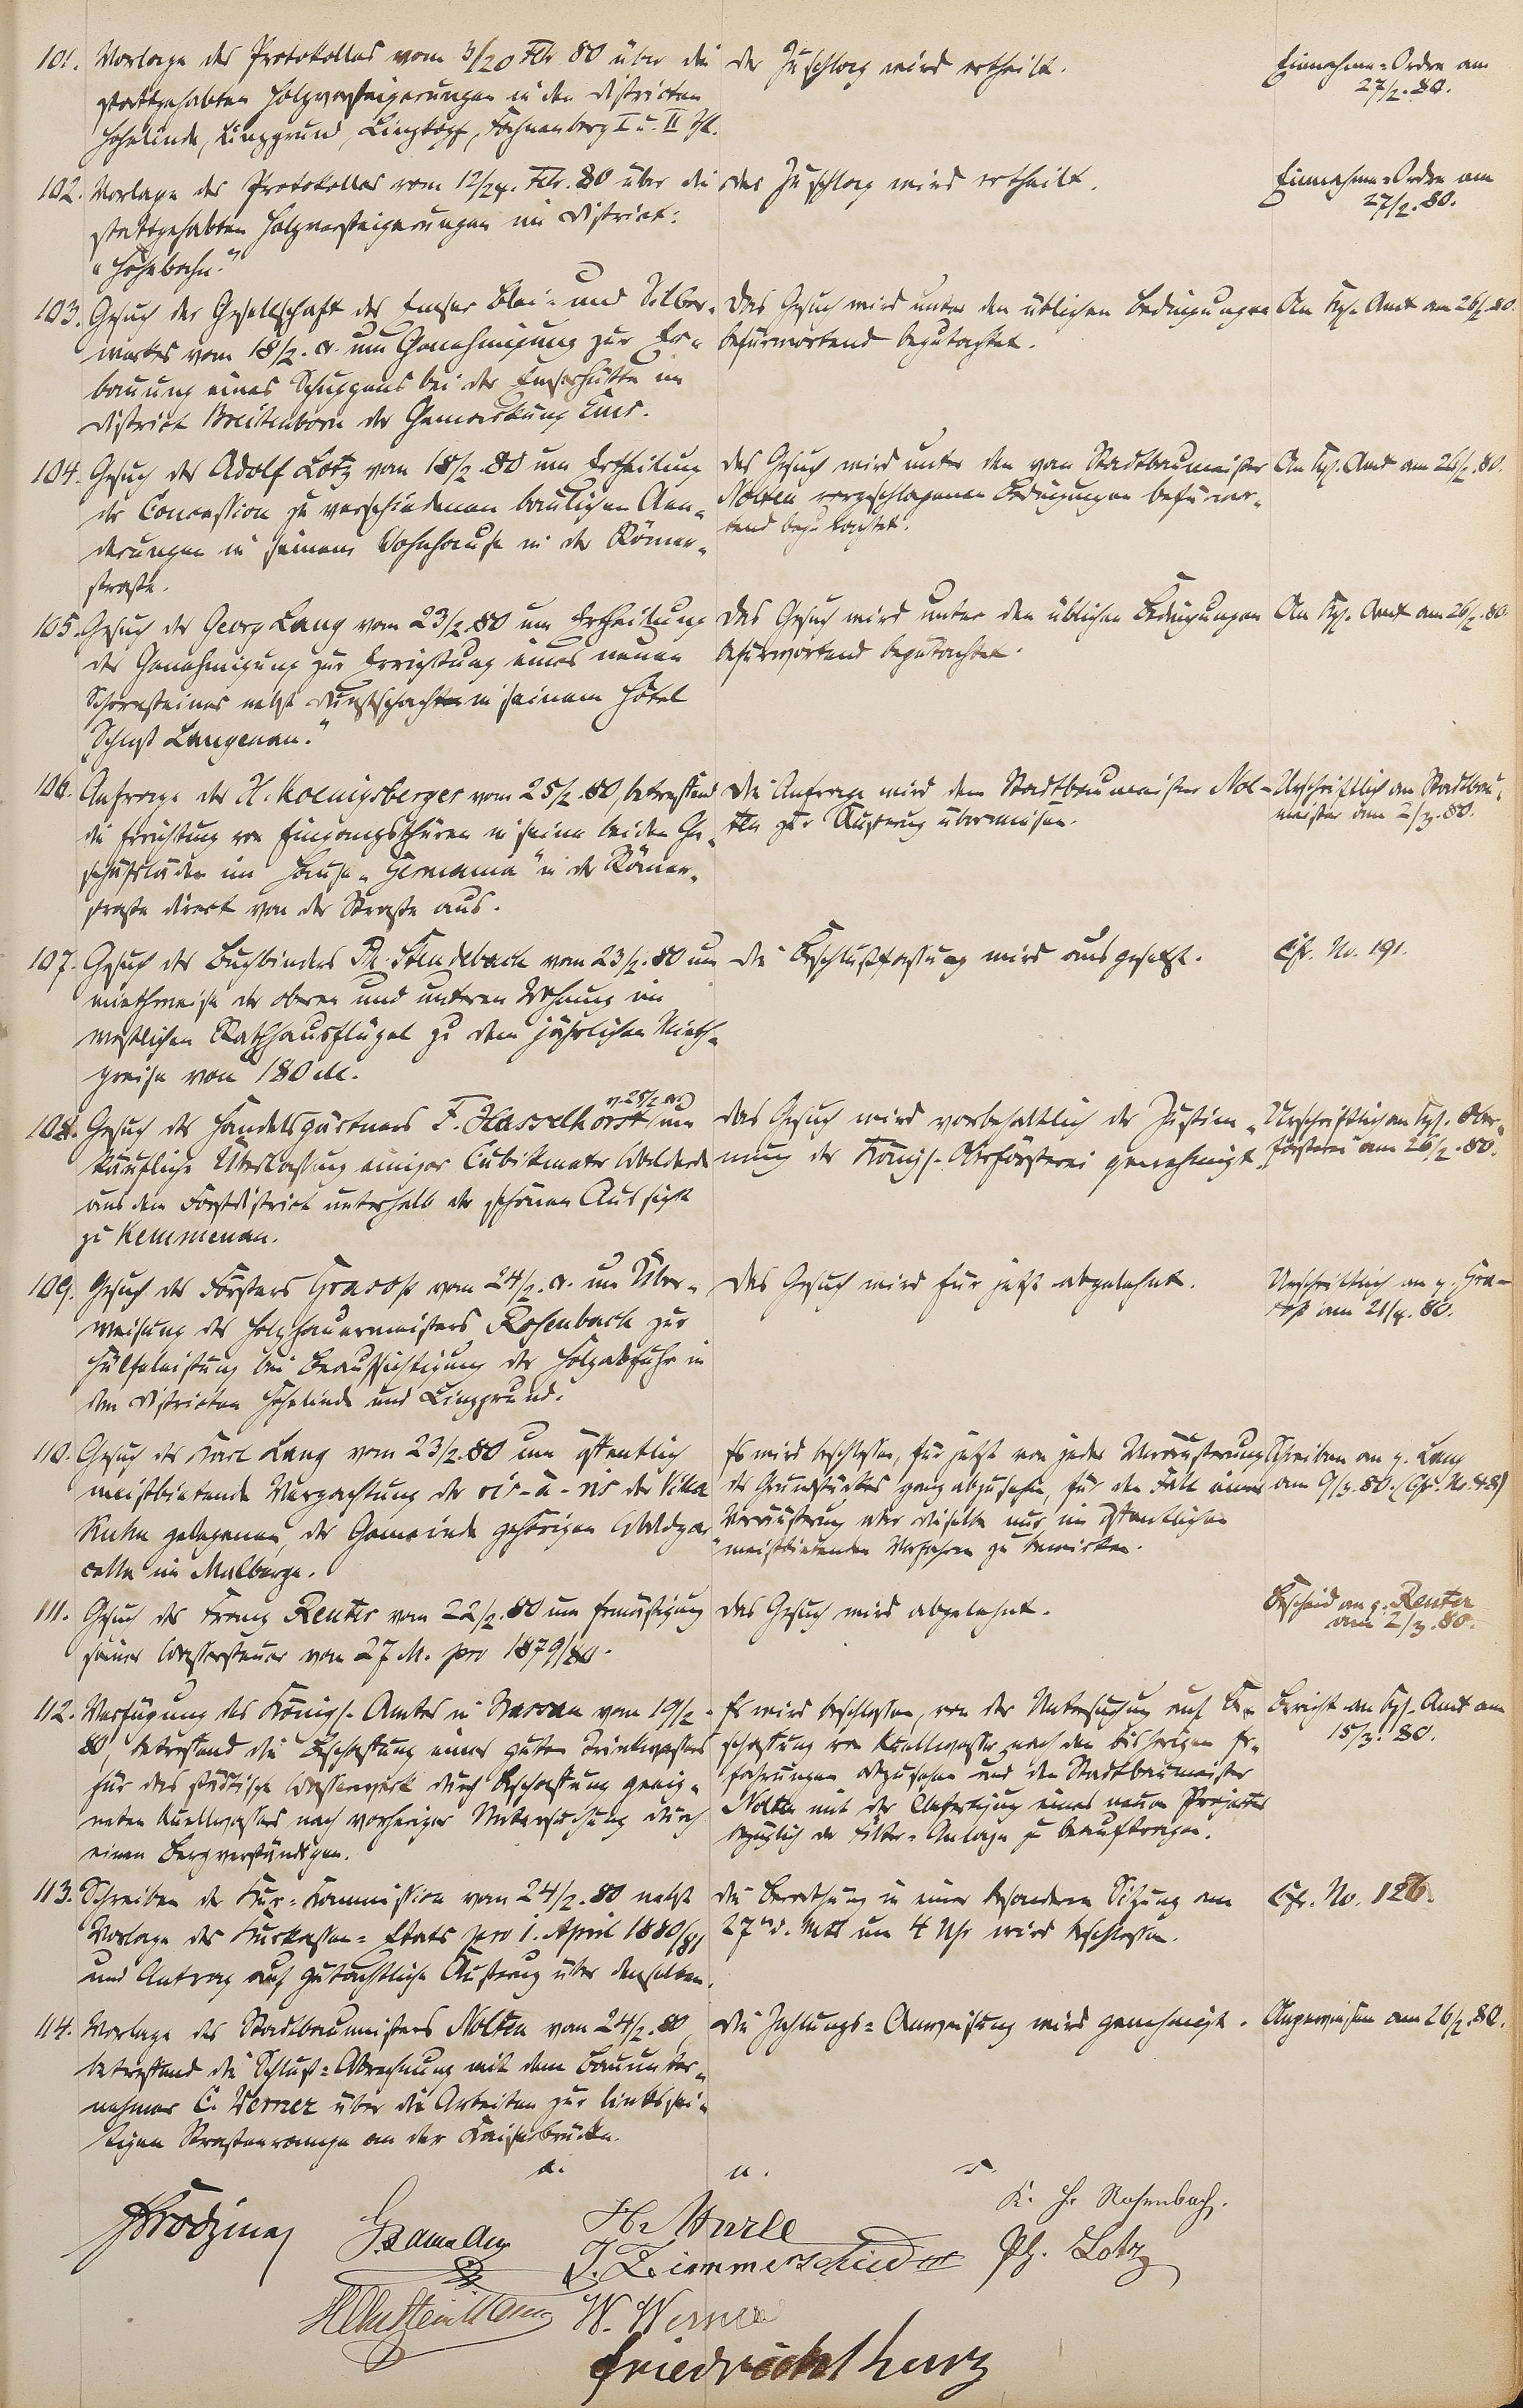 101. Vorlage des Protokolles vom 3/20 Febr 80 über die
stattgehabten Holzversteigerungen in den Districten
Hohelinde, Linzgrund, Linzkopf, I u. II Thl.
Der Zuschlag wird ertheilt.
Einnahme-Ordre am
27/2. 80.
102. Vorlage des Protokolles vom 12/24. Febr. 80 über die
stattgehabten Holzversteigerungen im District:
"Höhebahn."
Der Zuschlag wird ertheilt.
Einnahme-Ordre am
27/2. 80.
103. Gesuch der Gesellschaft des Emser Blei- und Silber-
werkes vom 18/2. cr. um Genehmigung zur Er-
bauung eines Schuppens bei der Emserhütte im
District Breitenborn der Gemarkung Ems.
Das Gesuch wird unter den üblichen Bedingungen
befürwortend begutachtet.
An Kgl. Amt am 26/2. 80.
104. Gesuch des Adolf Lotz vom 18/2. 80 um Ertheilung
der Concession zu verschiedenen baulichen Aen-
derungen in seinem Wohnhause in der Römer-
straße.
Das Gesuch wird unter den vom Stadtbaumeister
Nolten vorgeschlagenen Bedingungen befürwor-
tend begutachtet.
An Kgl. Amt am 26/2. 80.
105. Gesuch des Georg Lang vom 23/2. 80 um Ertheilung
der Genehmigung zur Errichtung eines neuen
Schornsteines nebst Dunstschachten in seinem Hôtel
"Schloß Langenau."
Das Gesuch wird unter den üblichen Bedingungen
befürwortend begutachtet.
An Kgl. Amt am 26/2. 80.
106. Anfrage des H. Koenigsberger vom 25/2. 80, betreffend
die Errichtung von Eingangsthüren in seine beiden Ge-
schäftsläden im Hause "Germania" in der Römer-
straße direct von der Straße aus.
Die Anfrage wird dem Stadtbaumeister Nol-
ten zur Äußerung überwiesen.
Urschriftlich an Stadtbau-
meister am 2/3. 80.
107. Gesuch des Buchbinders Ph. Stendebach vom 23/2. 80 um
miethweise der oberen und unteren Wohnung im
westlichen Rathhausflügel zu dem jährlichen Mieth-
preise von 180 M.
Die Beschlußfassung wird ausgesetzt.
Cfr. No. 191.
108. Gesuch des Handelsgärtners F. Hasselhorst v. 25/2 cr. um
käufliche Überlassung einiger Cubikmeter Walderde
aus dem Forstdistrict unterhalb der schönen Aussicht
zu Kemmenau.
Das Gesuch wird vorbehaltlich der Zustim-
mung der Königl. Oberförsterei genehmigt.
Urschriftlich an Kgl. Ober-
försterei am 26/2. 80.
109. Gesuch des Försters vom 24/2. cr. um Über-
weisung des Holzhauermeisters Rosenbach zur
Hülfeleistung bei Beaufsichtigung der Holzabfuhr in
den Districten Hohelinde und Linzgrund.
Das Gesuch wird für jetzt abgelehnt.
Urschriftlich an p.
am 21/4. 80.
110. Gesuch des Karl Lang vom 23/2. 80 um öffentlich
meistbietende Verpachtung der vis-à-vis der Villa
Kuhn gelegenen, der Gemeinde gehörigen Waldpar-
celle im Malberge.
Es wird beschlossen, für jetzt von jeder Veräußerung
des Grundstückes ganz abzusehen, für den Fall einer
Veräußerung aber dieselbe nur im öffentlichen
meistbietenden Verfahren zu bewirken.
Schreiben an p. Lang
am 9/3. 80. (Cfr. No. 48)
111. Gesuch des Franz Reuter vom 22/2. 80 um Ermäßigung
seiner Wassersteuer von 27 M. pro 1879/80.
Das Gesuch wird abgelehnt.
Bescheid an p. Reuter
am 2/3. 80.
112. Verfügung des Königl. Amtes in Nassau vom 19/2.
80, betreffend die Beschaffung eines guten Trinkwassers
für das städtische Wasserwerk durch Beschaffung geeig-
neten Quellwassers nach vorheriger Untersuchung durch
einen Bergverständigen.
Es wird beschlossen, von der Untersuchung auf Be-
schaffung von Quellwasser nach den bisherigen Er-
fahrungen abzusehen und den Stadtbaumeister
Nolten mit der Anfertigung eines neuen Projectes
bezüglich der Filter-Anlage zu beauftragen.
Bericht an Kgl. Amt am
15/3. 80.
113. Schreiben der Kur-Kommission vom 24/2. 80 nebst
Vorlage des Kurkassen-Etats pro 1. April 1880/81
und Antrag auf gutachtliche Äußerung über denselben.
Die Berathung in einer besonderen Sitzung am
27ten d. Mts um 4 Uhr wird beschlossen.
Cfr. No. 126.
114. Vorlage des Stadtbaumeisters Nolten vom 24/2. 80,
betreffend die Schluß-Abrechnung mit dem Bauunter-
nehmer C. Werner über die Arbeiten zur linkssei-
tigen Straßenrampe an der Kaiserbrücke.
Die Zahlungs-Anweisung wird genehmigt.
Angewiesen am 26/2. 80.
a. u. s.
K. H. Rosenbach.
H. Wurle
J. Zimmerschied
Ph. Lotz
W. Werner
Friedrich Kurz